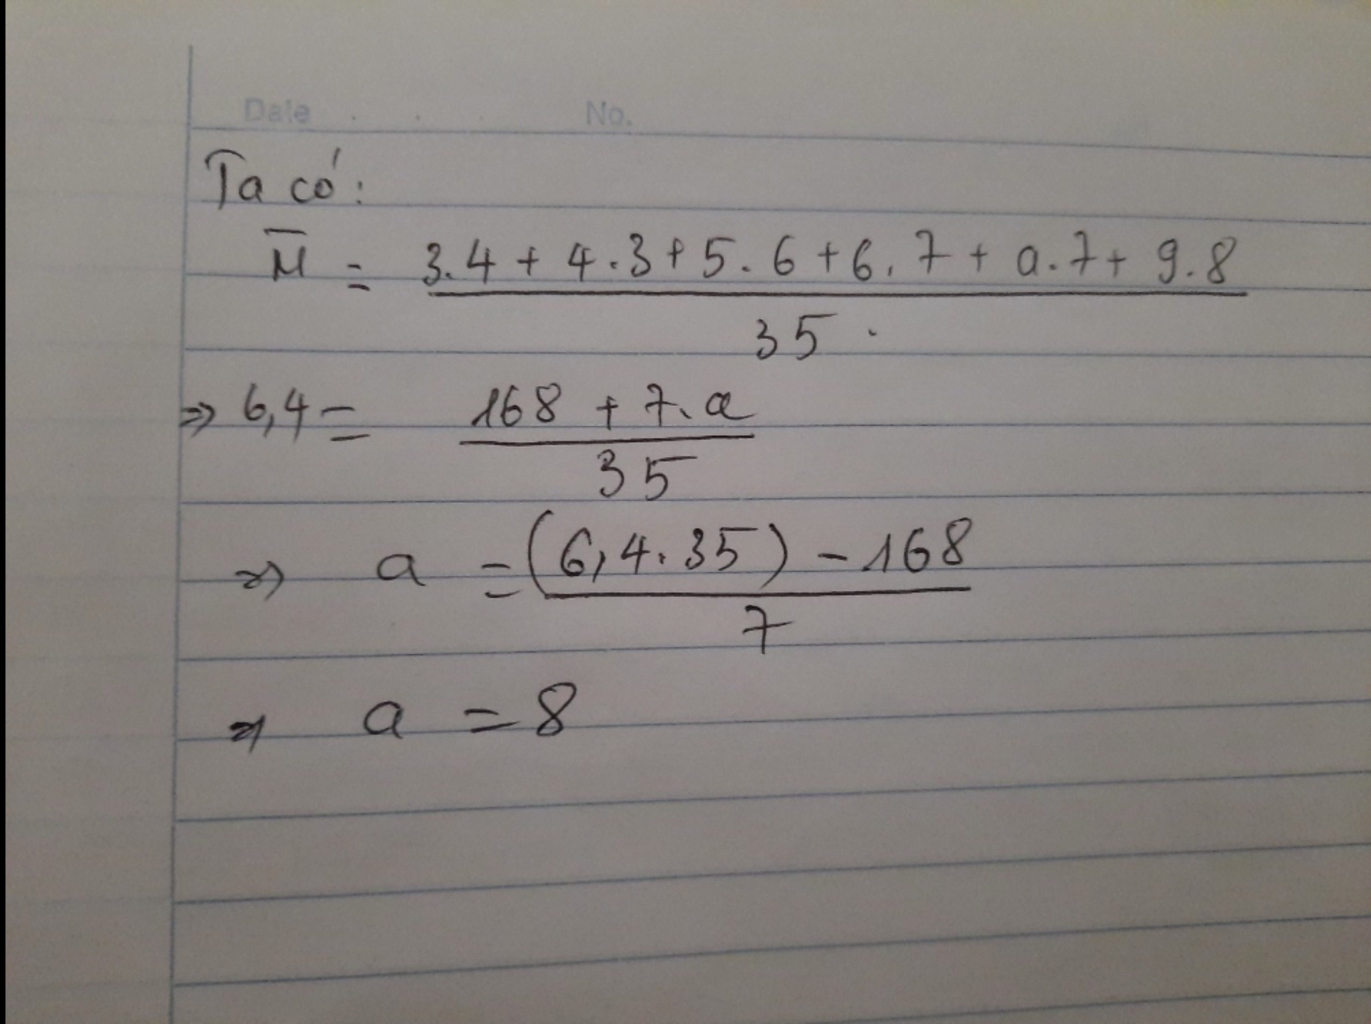 Date No.
Ta có:
M̅ = \frac{3.4 + 4.3 + 5.6 + 6.7 + a.7 + 9.8}{35}.
=> 6,4 = \frac{168 + 7.a}{35}
=> a = \frac{(6,4.35) - 168}{7}
=> a = 8